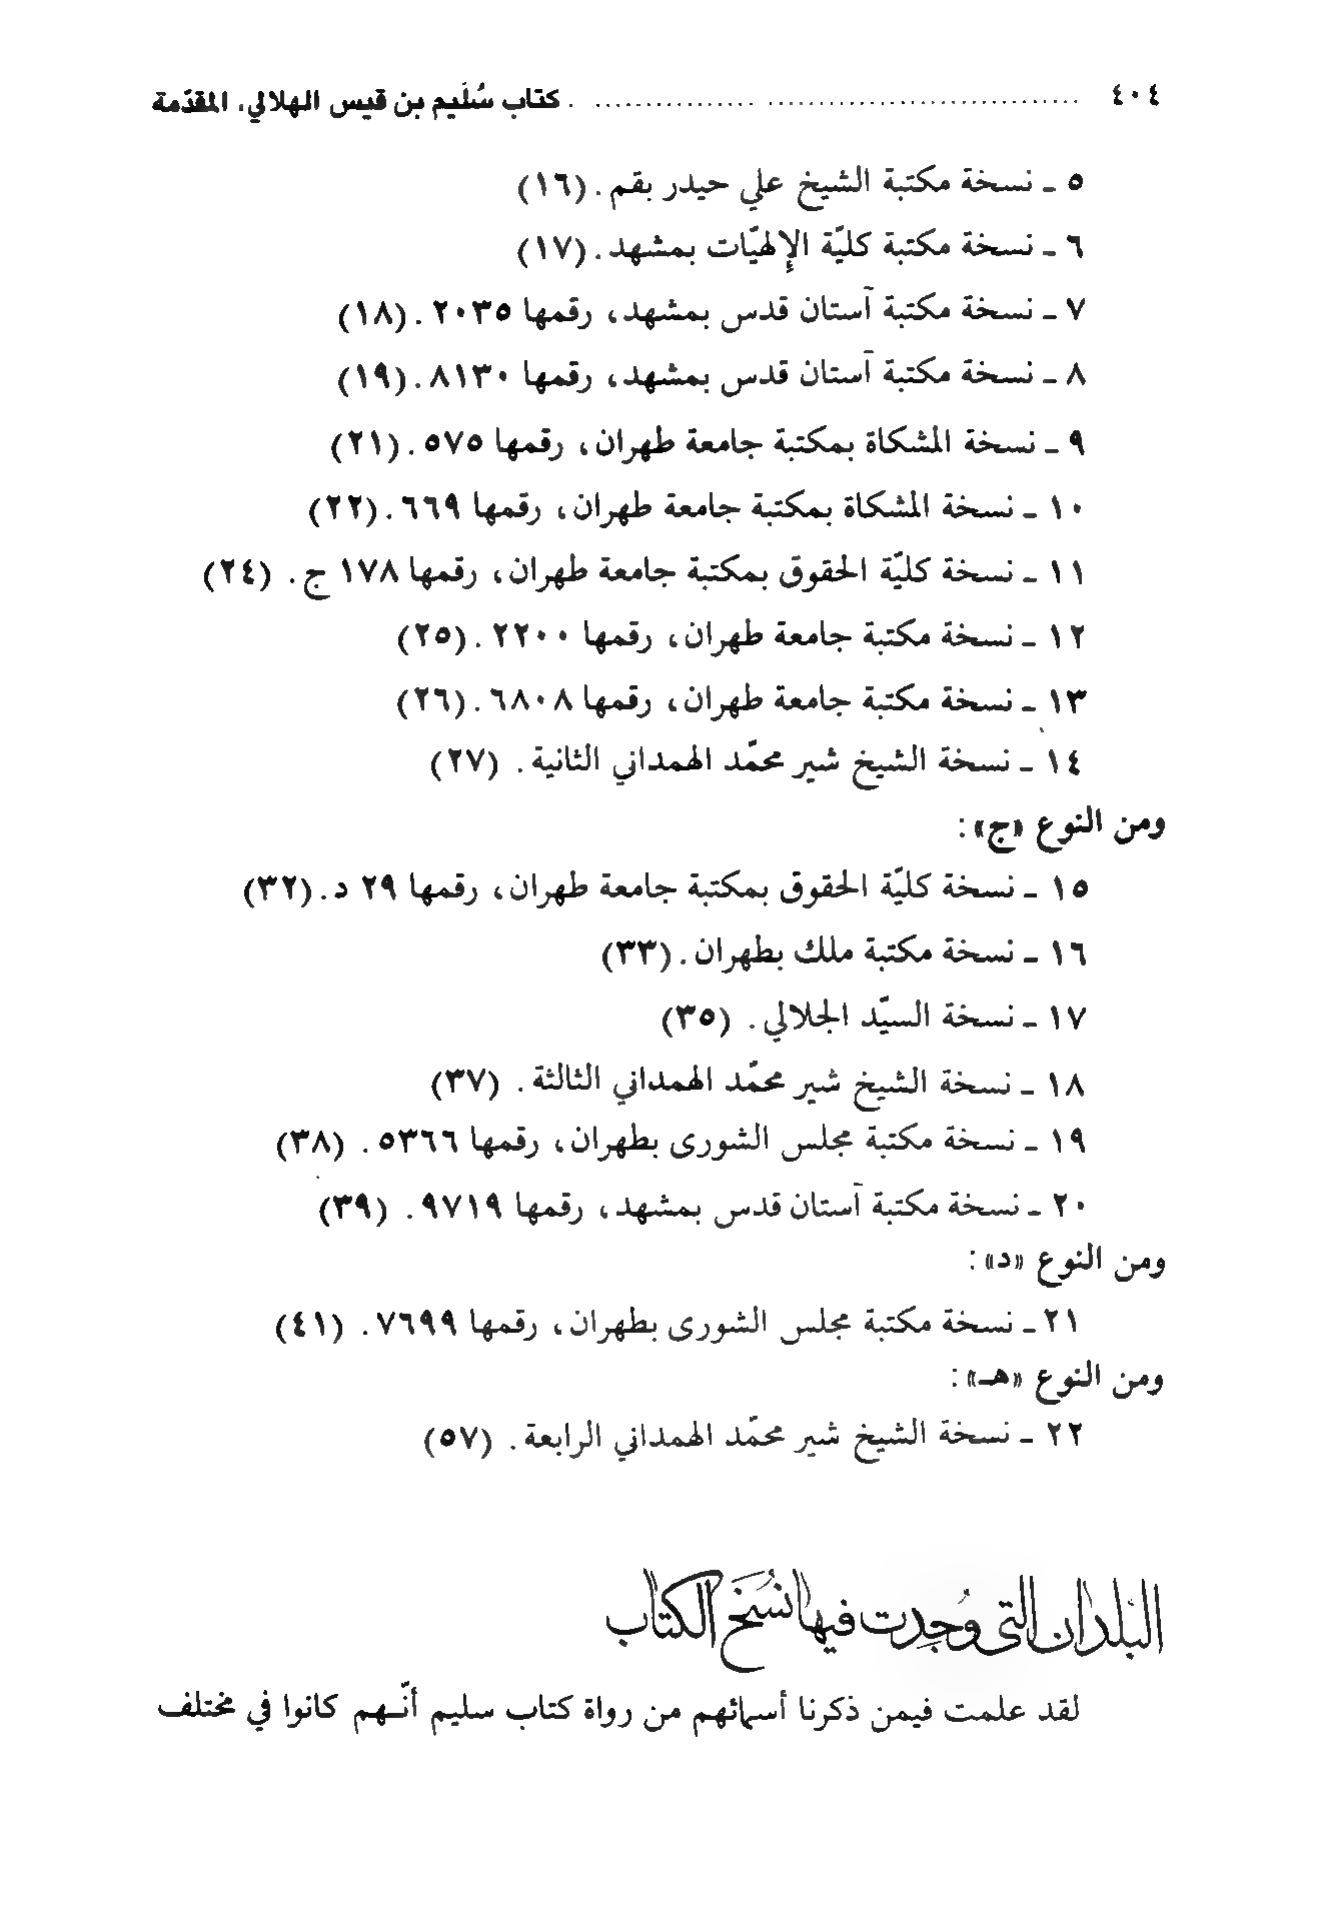 ٤٠٤ ................................................ . كتاب سُلَيم بن قيس الهلالي، المقدّمة
٥ ـ نسخة مكتبة الشيخ علي حيدر بقم. (١٦)
٦ ـ نسخة مكتبة كليّة الإلهيّات بمشهد. (١٧)
٧ ـ نسخة مكتبة آستان قدس بمشهد، رقمها ٢٠٣٥. (١٨)
٨ ـ نسخة مكتبة آستان قدس بمشهد، رقمها ٨١٣٠. (١٩)
٩ ـ نسخة المشكاة بمكتبة جامعة طهران، رقمها ٥٧٥. (٢١)
١٠ ـ نسخة المشكاة بمكتبة جامعة طهران، رقمها ٦٦٩. (٢٢)
١١ ـ نسخة كليّة الحقوق بمكتبة جامعة طهران، رقمها ١٧٨ ج. (٢٤)
١٢ ـ نسخة مكتبة جامعة طهران، رقمها ٢٢٠٠. (٢٥)
١٣ ـ نسخة مكتبة جامعة طهران، رقمها ٦٨٠٨. (٢٦)
١٤ ـ نسخة الشيخ شير محمّد الهمداني الثانية. (٢٧)
ومن النوع «ج»:
١٥ ـ نسخة كليّة الحقوق بمكتبة جامعة طهران، رقمها ٢٩ د. (٣٢)
١٦ ـ نسخة مكتبة ملك بطهران. (٣٣)
١٧ ـ نسخة السيّد الجلالي. (٣٥)
١٨ ـ نسخة الشيخ شير محمّد الهمداني الثالثة. (٣٧)
١٩ ـ نسخة مكتبة مجلس الشورى بطهران، رقمها ٥٣٦٦. (٣٨)
٢٠ ـ نسخة مكتبة آستان قدس بمشهد، رقمها ٩٧١٩. (٣٩)
ومن النوع «د»:
٢١ ـ نسخة مكتبة مجلس الشورى بطهران، رقمها ٧٦٩٩. (٤١)
ومن النوع «هـ»:
٢٢ ـ نسخة الشيخ شير محمّد الهمداني الرابعة. (٥٧)
البُلدان التي وُجِدت فيها نُسَخ الكتاب
لقد علمت فيمن ذكرنا أسمائهم من رواة كتاب سليم أنّـهم كانوا في مختلف